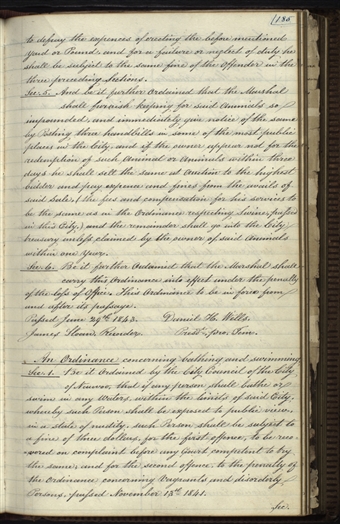 185
to defray the expenses of erecting the before mentioned
yard or Pound. and for a failure or neglect of duty he
shall be subject to the same fine of the offender in the
three preceding Sections.
Sec. 5. And be it further ordained that the Marshal
shall furnish keeping for said Animals so
impounded, and immediately give notice of the same
by Posting three handbills in some of the most public
places in the City, and if the owner appear not for the
redemption of such Animal or Animals within three
days he shall sell the same at Auction to the highest
bidder and pay expence and fines from the avails of
said Sale, (the fees and compensation for his services to
be the same as in the Ordinance respecting Swine, passed
in this City,) and the remainder shall go into the City
treasury unless claimed by the owner of said Animals
within one year.
Sec. 6. Be it further Ordained that the Marshal shall
carry this Ordinance into effect under the penalty
of the loss of Office. This Ordinance to be in force from
and after its passage.
Passed June 29th 1843. Daniel H. Wells.
James Sloan, Recorder. Presdt. pro. Tem.
An Ordinance concerning bathing and swimming
Sec. 1. Be it Ordained by the City Council of the City
of Nauvoo, that if any person shall bathe or
swim in any Waters within the limits of said City,
whereby such Person shall be exposed to public view,
in a state of nudity, such Person shall be subject to
a fine of three dollars, for the first offence, to be reco-
vered on complaint before any Court competent to try
the same, and for the second offence, to the penalty of
the Ordinance concerning Vagrants and disorderly
Persons, passed November 13th 1841.
Sec.